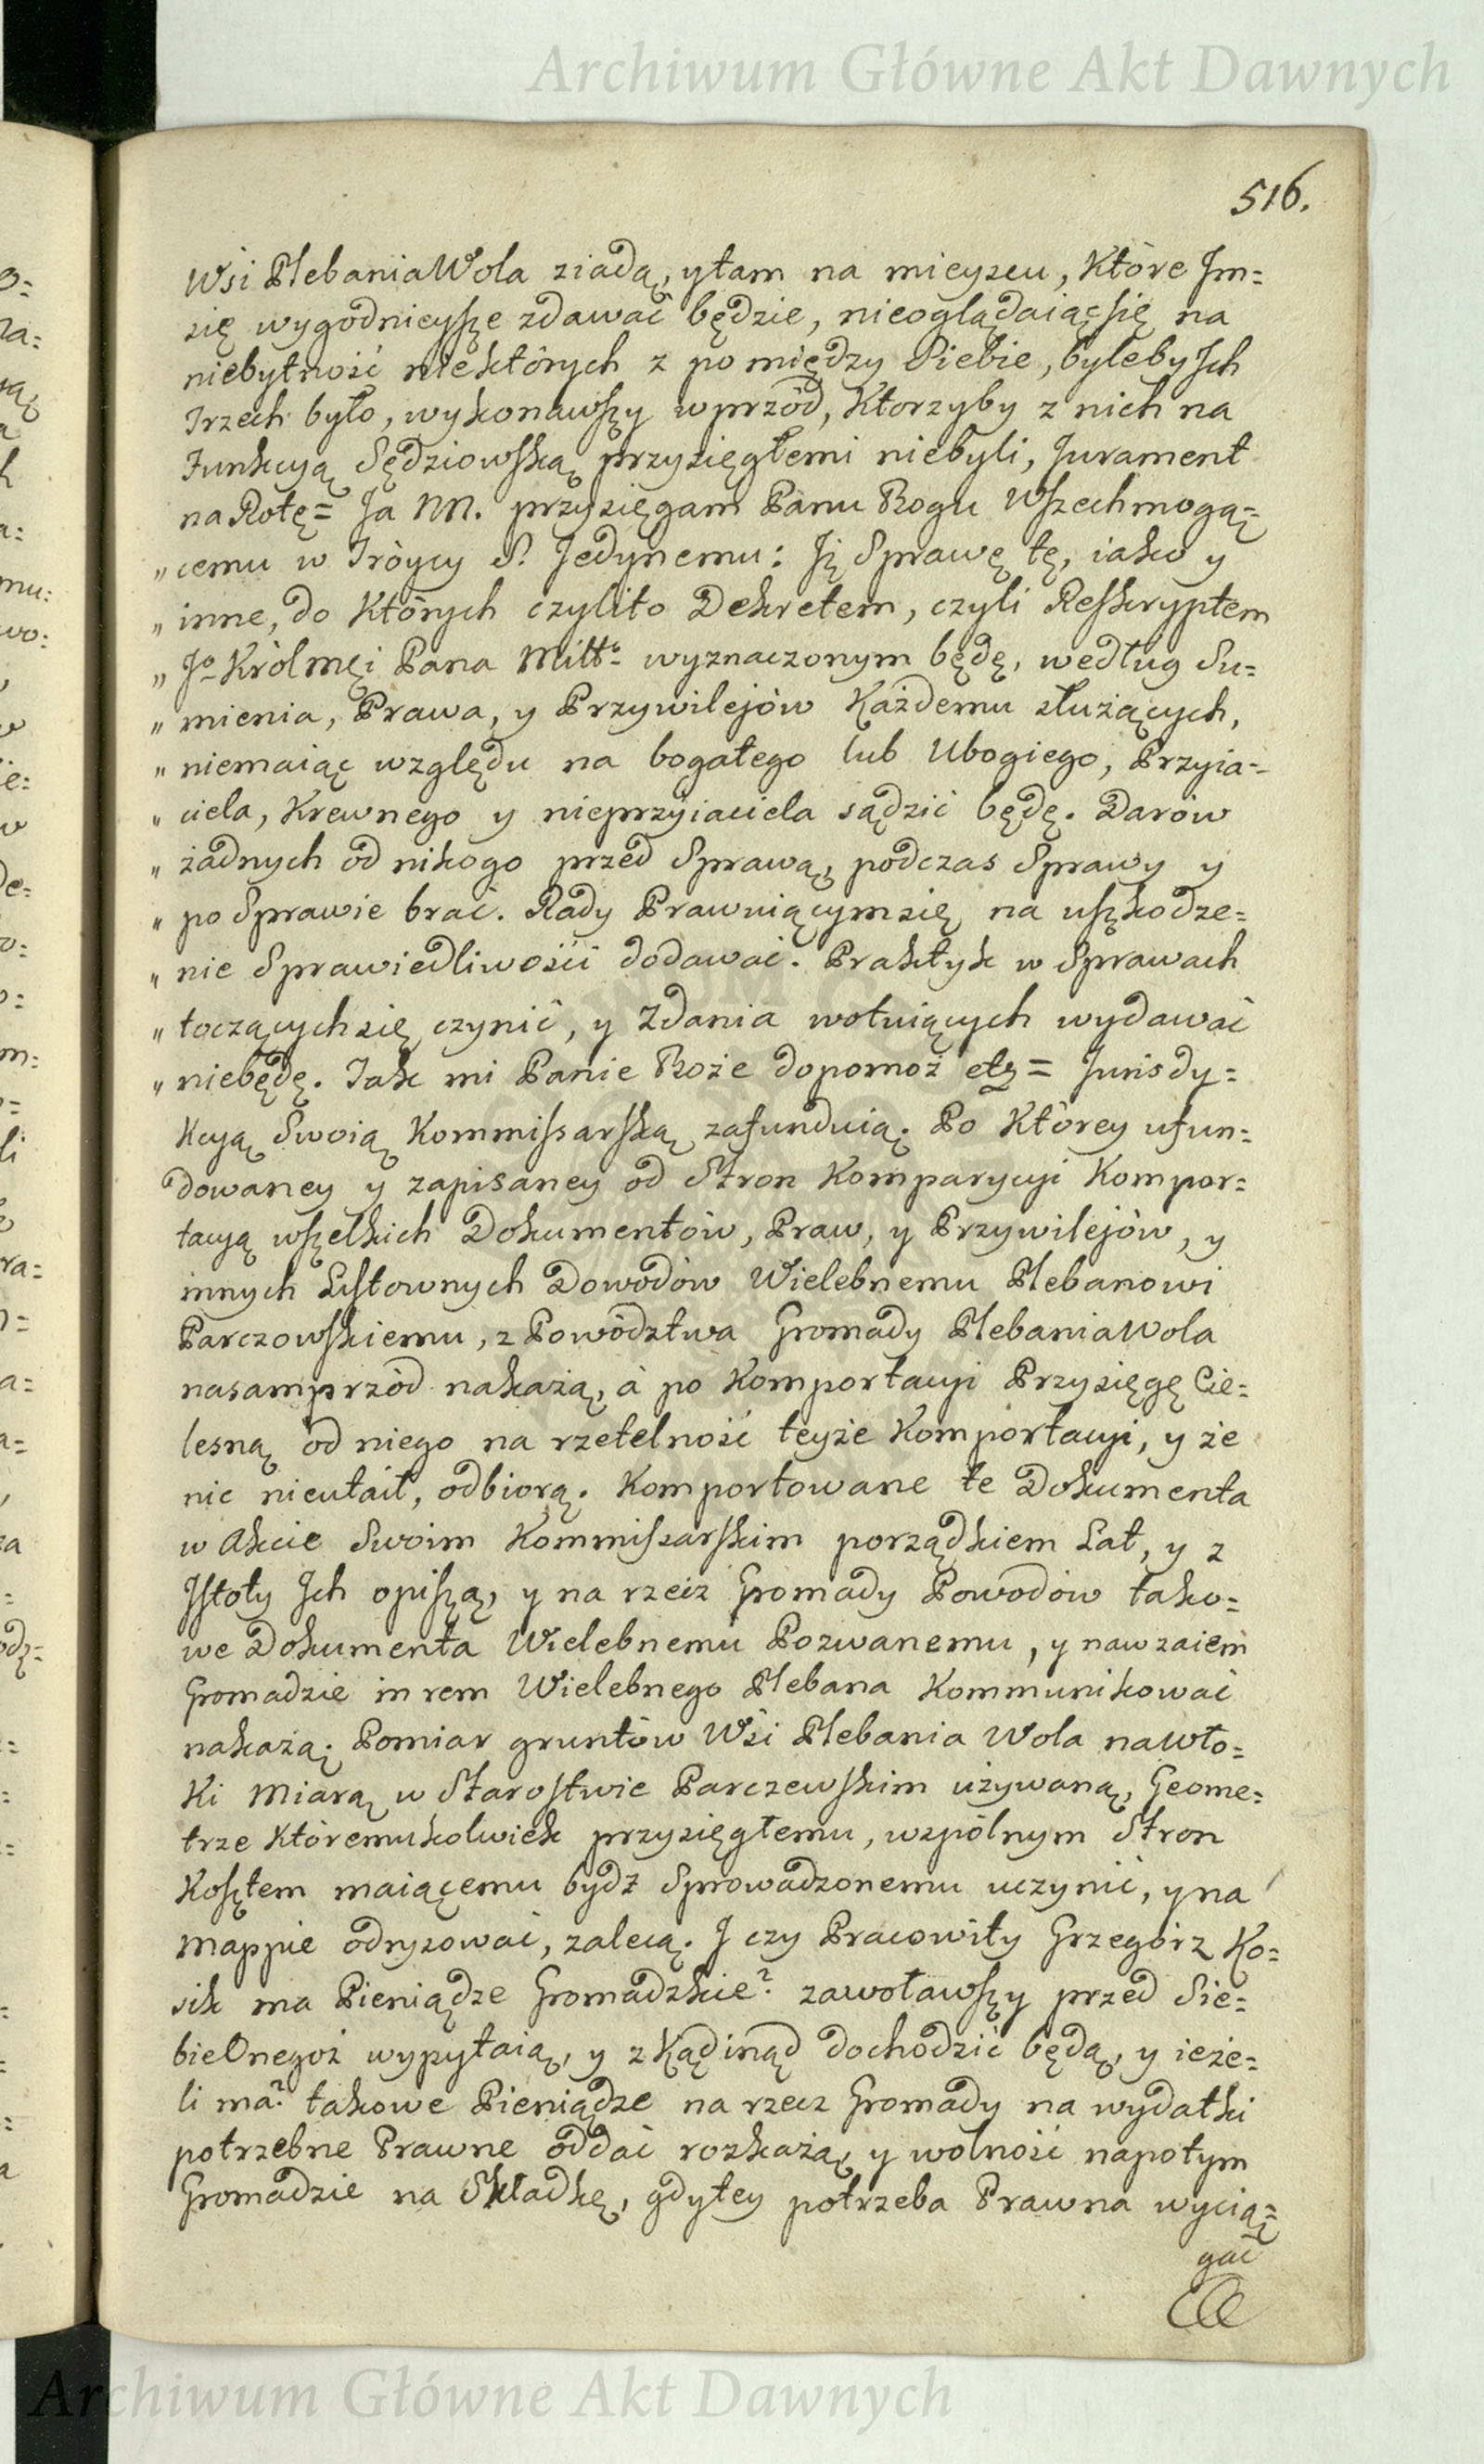 Archiwum Główne Akt Dawnych
516.
Wsi Plebania Wola ziadą, y tam na mieyscu, Które Jm=
się wygodnieysze zdawać będzie, nieoglądaiąc się na
niebytność niektórych z pomiędzy Siebie, byleby Jch
Trzech było, wykonawszy wprzód, Ktorzyby z nich na
Funkcyą Sędziowską przysięgłemi niebyli, Jurament
na Rotę= Ja NN. przysięgam Panu Bogu Wszechmogą=
„ cemu w Tròycy S. Jedynemu: Jż Sprawę tę, iako y
„ inne, do Których czylito Dekretem, czyli Reskryptem
„ Jº Królmci Pana Miłłº wyznaczonym będę, według Su=
„ mienia, Prawa, y Przywilejów Każdemu służących,
„ niemaiąc względu na bogatego lub Ubogiego, Przyia=
„ ciela, Krewnego y nieprzyiaciela sądzić będę. Darów
„ żadnych od nikogo przed Sprawą, podczas Sprawy y
„ po Sprawie brać. Rady Prawuiącym się na uszkodze=
„ nie Sprawiedliwości dodawać. Praktyk w Sprawach
„ toczących się czynić, y Zdania wotuiących wydawać
„ niebędę. Tak mi Panie Boże dopomoż etz= Jurisdy=
Kcyą Swoią Kommissarską zafunduią. Po Którey ufun=
dowaney y zapisaney od Stron Komparycyi Kompor=
tacyą wszelkich Dokumentów, Praw, y Przywilejów, y
innych Listownych Dowodów Wielebnemu Plebanowi
Parczowskiemu, z Powództwa Gromady Plebania Wola
nasamprzód nakażą, à po Komportacyi Przysięgę Cie=
lesną od niego na rzetelność teyże Komportacyi, y że
nic nieutaił, odbiorą. Komportowane te Dokumenta
w Akcie Swoim Kommissarskim porządkiem Lat, y z
Jstoty Jch opiszą, y na rzecz Gromady Powodów tako=
we Dokumenta Wielebnemu Pozwanemu, y nawzaiem
Gromadzie in rem Wielebnego Plebana Kommunikować
nakażą. Pomiar gruntów Wsi Plebania Wola na Wło=
Ki Miarą w Starostwie Parczewskim używaną, Geome=
trze Któremukolwiek przysięgłemu, wspólnym Stron
Kosztem maiącemu bydź Sprowadzonemu uczynić, y na
Mappie odrysować, zalecą. J czy Pracowity Grzegórz Ko=
sik ma Pieniądze Gromadzkie? zawoławszy przed Sie=
bie Onegoż wypytaią, y zKądinąd dochodzić będą, y ieże=
li ma? takowe Pieniądze na rzecz Gromady na wydatki
potrzebne Prawne oddać rozkażą, y wolność napotym
Gromadzie na Składkę, gdy tey potrzeba Prawna wycią=
gać
Archiwum Główne Akt Dawnych